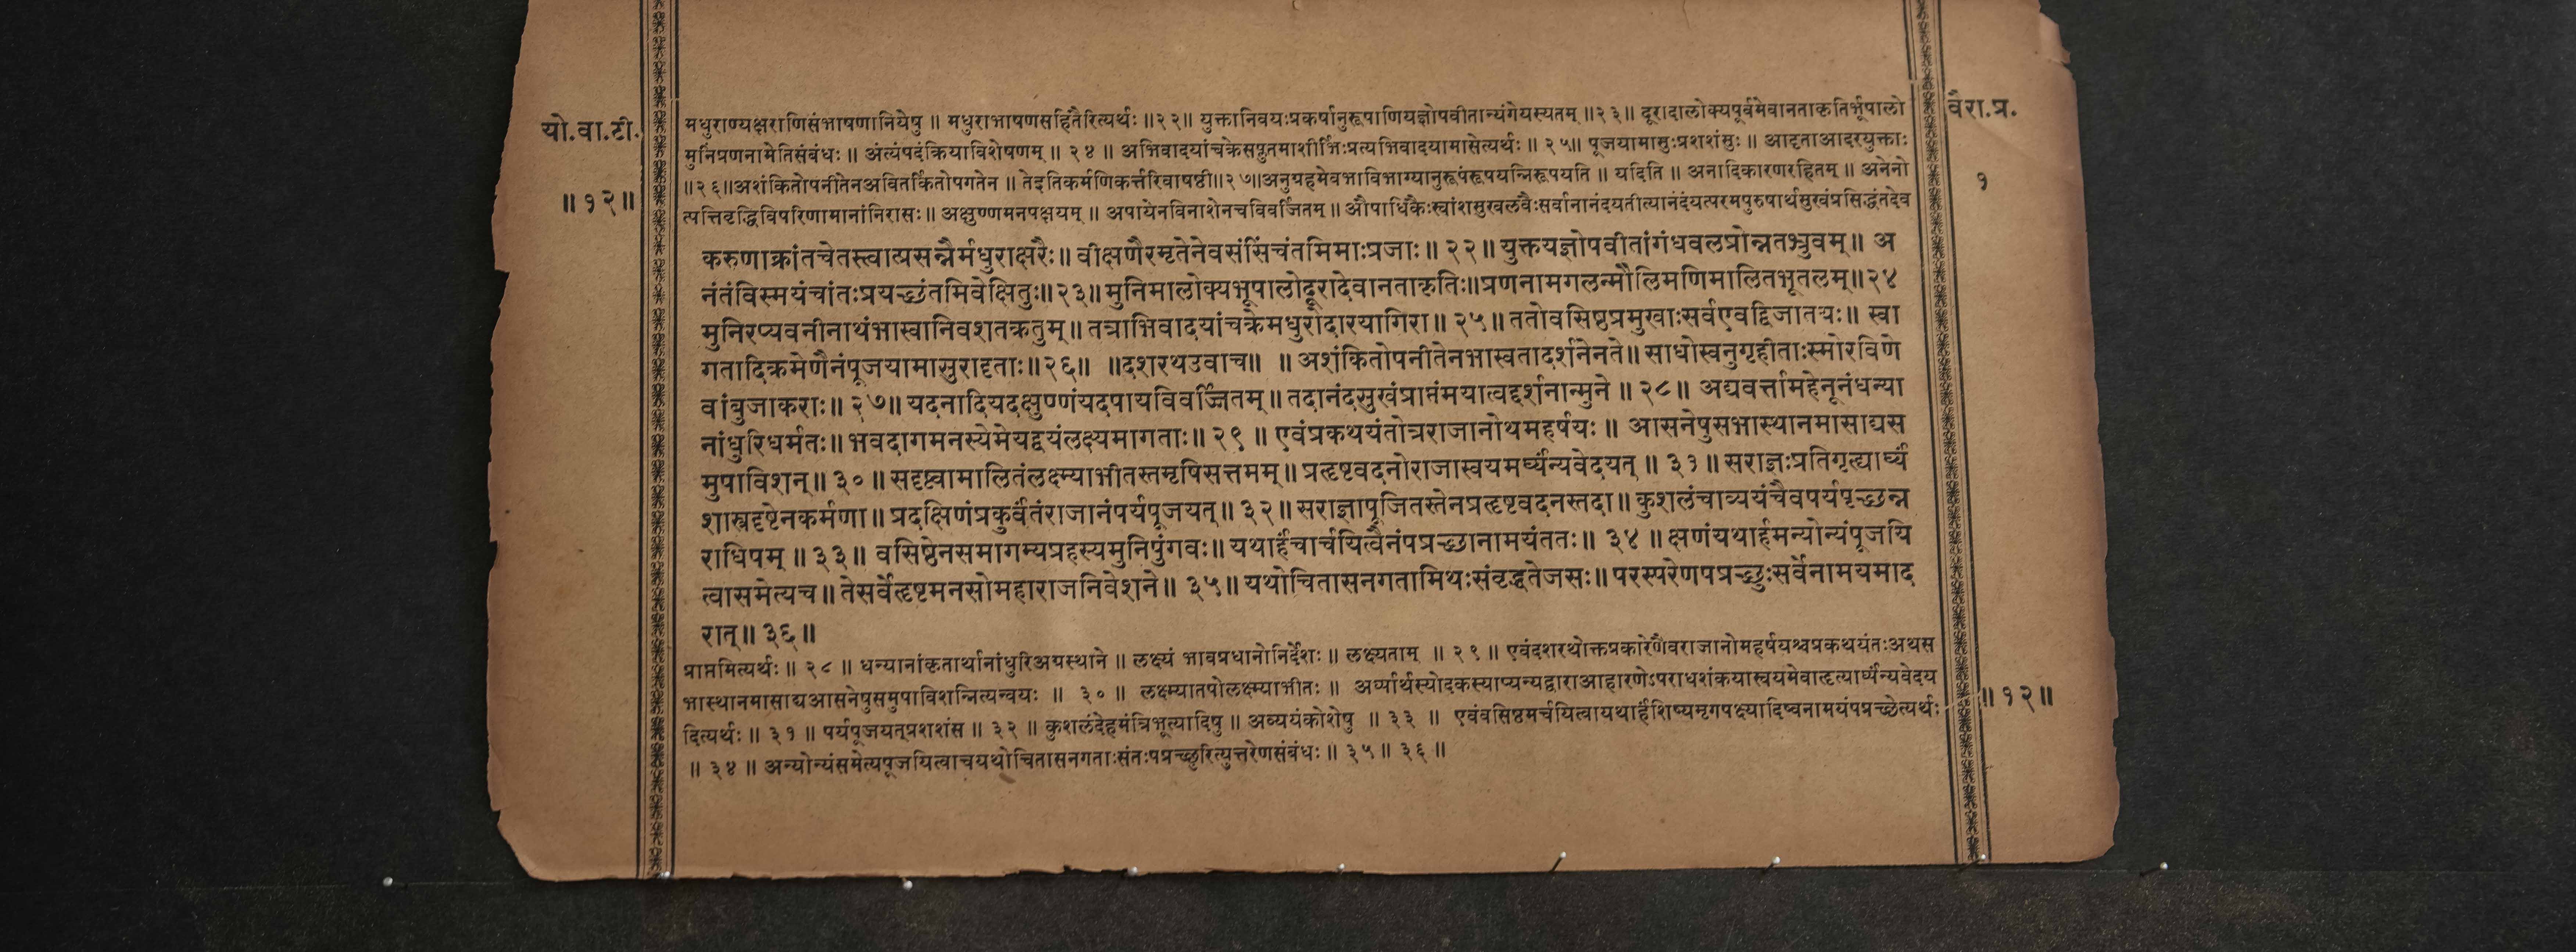 यो.वा.टी.
॥१२॥
मधुराण्यक्षराणिसंभाषणानियेषु ॥ मधुराभाषणसहितैरित्यर्थः ॥२२॥ युक्तानिवयःप्रकर्षानुरूपाणियज्ञोपवीतान्यंगेयस्यतम् ॥२३॥ दूरादालोक्यपूर्वमेवानताकृतिर्भूपालो
मुनिंप्रणनामेतिसंबंधः ॥ अंत्यंपदंक्रियाविशेषणम् ॥ २४ ॥ अभिवादयांचक्रेसप्रुतमाशीर्भिःप्रत्यभिवादयामासेत्यर्थः ॥ २५॥ पूजयामासुःप्रशशंसुः ॥ आदृताआदरयुक्ताः
॥२६॥अशंकितोपनीतेनअवितर्कितोपगतेन ॥ तेइतिकर्मणिकर्त्तरिवाषष्ठी॥२७॥अनुग्रहमेवभाविभाग्यानुरूपंरूपयन्निरूपयति ॥ यदिति ॥ अनादिकारणरहितम् ॥ अनेनो
त्पत्तिवृद्धिविपरिणामानांनिरासः ॥ अक्षुण्णमनपक्षयम् ॥ अपायेनविनाशेनचविवर्जितम् ॥ औपाधिकैःस्वांशसुखलवैःसर्वानानंदयतीत्यानंदंयत्परमपुरुषार्थसुखंप्रसिद्धंतदेव
करुणाक्रांतचेतस्त्वात्प्रसन्नैर्मधुराक्षरैः॥ वीक्षणैरमृतेनेवसंसिंचंतमिमाःप्रजाः ॥ २२ ॥ युक्तयज्ञोपवीतांगंधवलप्रोन्नतभ्रुवम् ॥ अ
नंतंविस्मयंचांतःप्रयच्छंतमिवेक्षितुः॥२३॥ मुनिमालोक्यभूपालोदूरादेवानताकृतिः॥प्रणनामगलन्मौलिमणिमालितभूतलम्॥२४
मुनिरप्यवनीनाथंभास्वानिवशतक्रतुम् ॥ तत्राभिवादयांचक्रेमधुरोदारयागिरा ॥ २५ ॥ ततोवसिष्ठप्रमुखाःसर्वएवद्विजातयः ॥ स्वा
गतादिक्रमेणैनंपूजयामासुरादृताः॥२६॥ ॥दशरथउवाच॥ ॥ अशंकितोपनीतेनभास्वतादर्शनेनते॥ साधोस्वनुगृहीताःस्मोरविणे
वांबुजाकराः॥ २७॥ यदनादियदक्षुण्णंयदपायविवर्ज्जितम् ॥ तदानंदसुखंप्राप्तंमयात्वद्दर्शनान्मुने ॥ २८॥ अद्यवर्त्तामहेनूनंधन्या
नांधुरिधर्मतः॥ भवदागमनस्येमेयद्वयंलक्ष्यमागताः॥ २९ ॥ एवंप्रकथयंतोत्रराजानोथमहर्षयः ॥ आसनेषुसभास्थानमासाद्यस
मुपाविशन्॥ ३० ॥ सदृष्ट्वामालितंलक्ष्म्याभीतस्तमृषिसत्तमम् ॥ प्रहृष्टवदनोराजास्वयमर्घ्यंन्यवेदयत् ॥ ३१ ॥ सराज्ञःप्रतिगृह्यार्घ्यं
शास्त्रदृष्टेनकर्मणा ॥ प्रदक्षिणंप्रकुर्वंतंराजानंपर्यपूजयत् ॥ ३२ ॥ सराज्ञापूजितस्तेनप्रहृष्टवदनस्तदा ॥ कुशलंचाव्ययंचैवपर्यपृच्छन्न
राधिपम् ॥ ३३ ॥ वसिष्ठेनसमागम्यप्रहस्यमुनिपुंगवः ॥ यथार्हंचार्चयित्वैनंपप्रच्छानामयंततः ॥ ३४ ॥ क्षणंयथार्हमन्योन्यंपूजयि
त्वासमेत्यच ॥ तेसर्वेहृष्टमनसोमहाराजनिवेशने ॥ ३५ ॥ यथोचितासनगतामिथःसंवृद्धतेजसः॥ परस्परेणपप्रच्छुःसर्वेनामयमाद
रात् ॥ ३६ ॥
प्राप्तमित्यर्थः ॥ २८ ॥ धन्यानांकृतार्थानांधुरिअग्रस्थाने ॥ लक्ष्यं भावप्रधानोनिर्देशः ॥ लक्ष्यताम् ॥ २९ ॥ एवंदशरथोक्तप्रकारेणैवराजानोमहर्षयश्चप्रकथयंतःअथस
भास्थानमासाद्यआसनेषुसमुपाविशन्नित्यन्वयः ॥ ३० ॥ लक्ष्म्यातपोलक्ष्म्याभीतः ॥ अर्घ्यार्थस्योदकस्याप्यन्यद्वाराआहारणेऽपराधशंकयास्वयमेवाहृत्यार्घ्यंन्यवेदय
दित्यर्थः ॥ ३१ ॥ पर्यपूजयत्प्रशशंस ॥ ३२ ॥ कुशलंदेहमंत्रिभृत्यादिषु ॥ अव्ययंकोशेषु ॥ ३३ ॥ एवंवसिष्ठमर्चयित्वायथार्हंशिष्यमृगपक्ष्यादिष्वनामयंपप्रच्छेत्यर्थः
॥ ३४ ॥ अन्योन्यंसमेत्यपूजयित्वाचयथोचितासनगताःसंतःपप्रच्छुरित्युत्तरेणसंबंधः ॥ ३५ ॥ ३६ ॥
वैरा.प्र.
१
॥१२॥